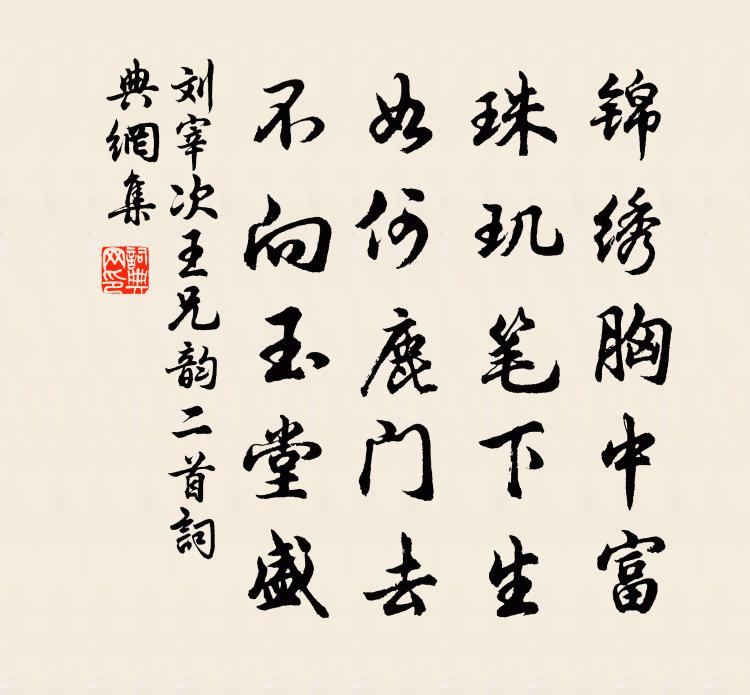 锦绣胸中富
珠玑笔下生
如何鹿门去
不向玉堂盛
刘宰次王兄韵二首詞
典網集
詞典
网印